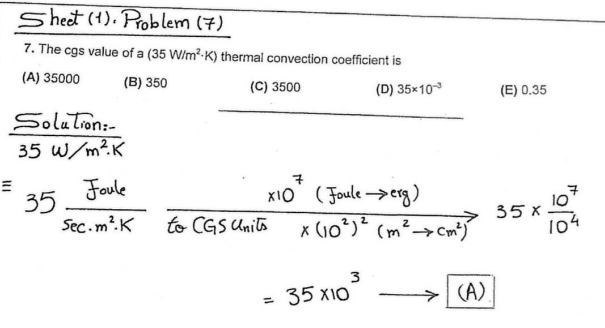 Sheet (1). Problem (7)
7. The cgs value of a (35 W/m²·K) thermal convection coefficient is
(A) 35000 (B) 350 (C) 3500 (D) 35×10⁻³ (E) 0.35
Solution:-
35 W/m².K
≡ 35 Joule / Sec.m².K ×10⁷ (Joule → erg) / to CGS Units × (10²)² (m² → cm²) 35 × 10⁷ / 10⁴
= 35 ×10³ → (A)